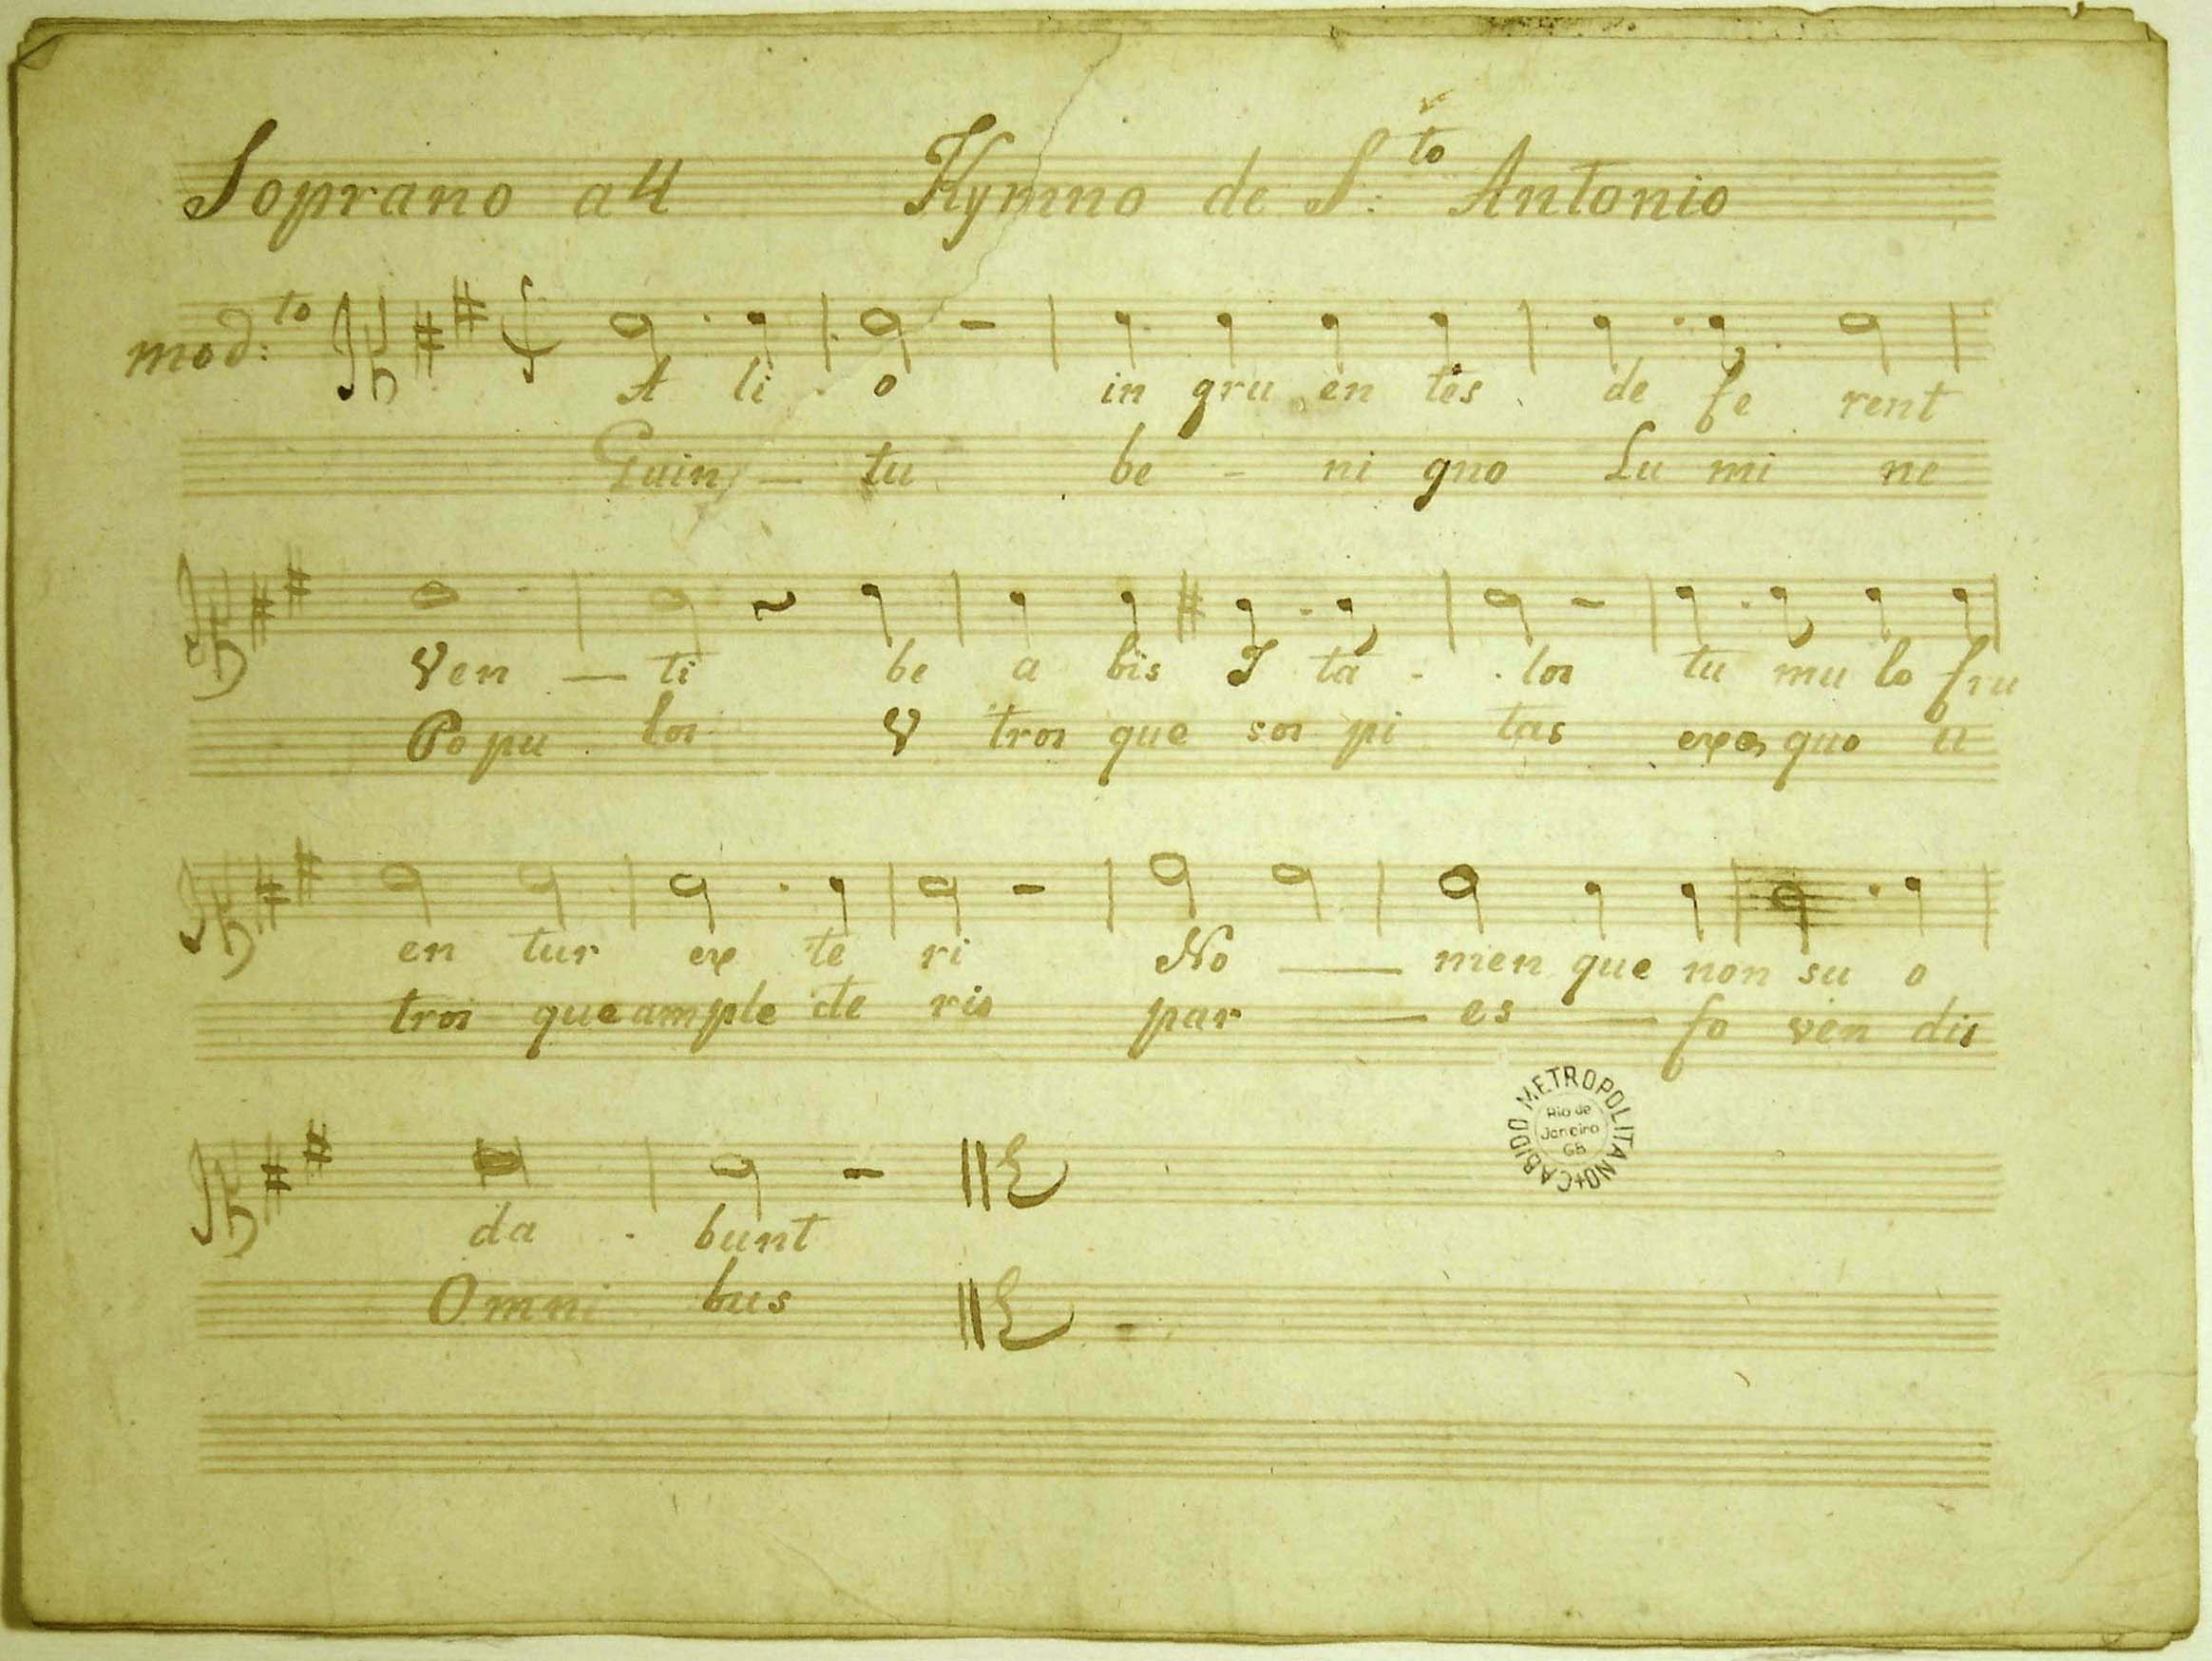 Soprano a4 Hymno de S.to Antonio
mod:to
A li . o in gru en tes de fe rent
tu be - ni gno Lu mi ne
Ven — ti be a bis I ta - . los tu mu lo fru
Po pu . los V tros que sos pi tas quo u
en tur ex te ri No — men que non su o
tros que ample cte ris par — es — fo ven dis
CABIDO METROPOLITANO+
Rio de
Janeiro
GB
da . bunt
Omni bus